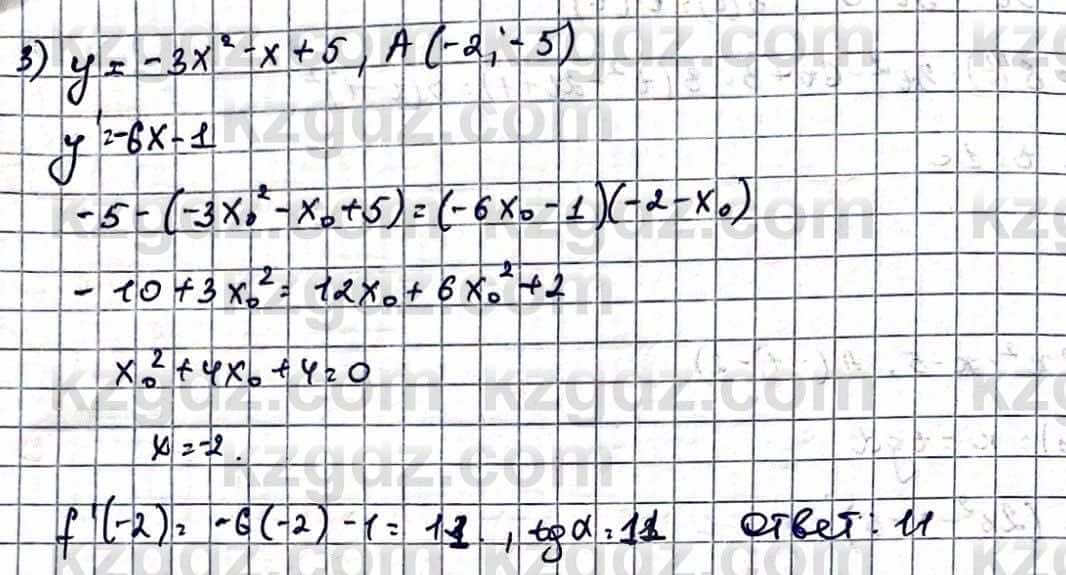 3) y = -3x² - x + 5, A(-2; -5)
y' = -6x - 1
-5 - (-3x₀² - x₀ + 5) = (-6x₀ - 1)(-2 - x₀)
-10 + 3x₀² = 12x₀ + 6x₀² + 2
x₀² + 4x₀ + 4 = 0
x = -2.
f'(-2) = -6(-2) - 1 = 11, tgα = 11 ответ: 11
kzgdz.com